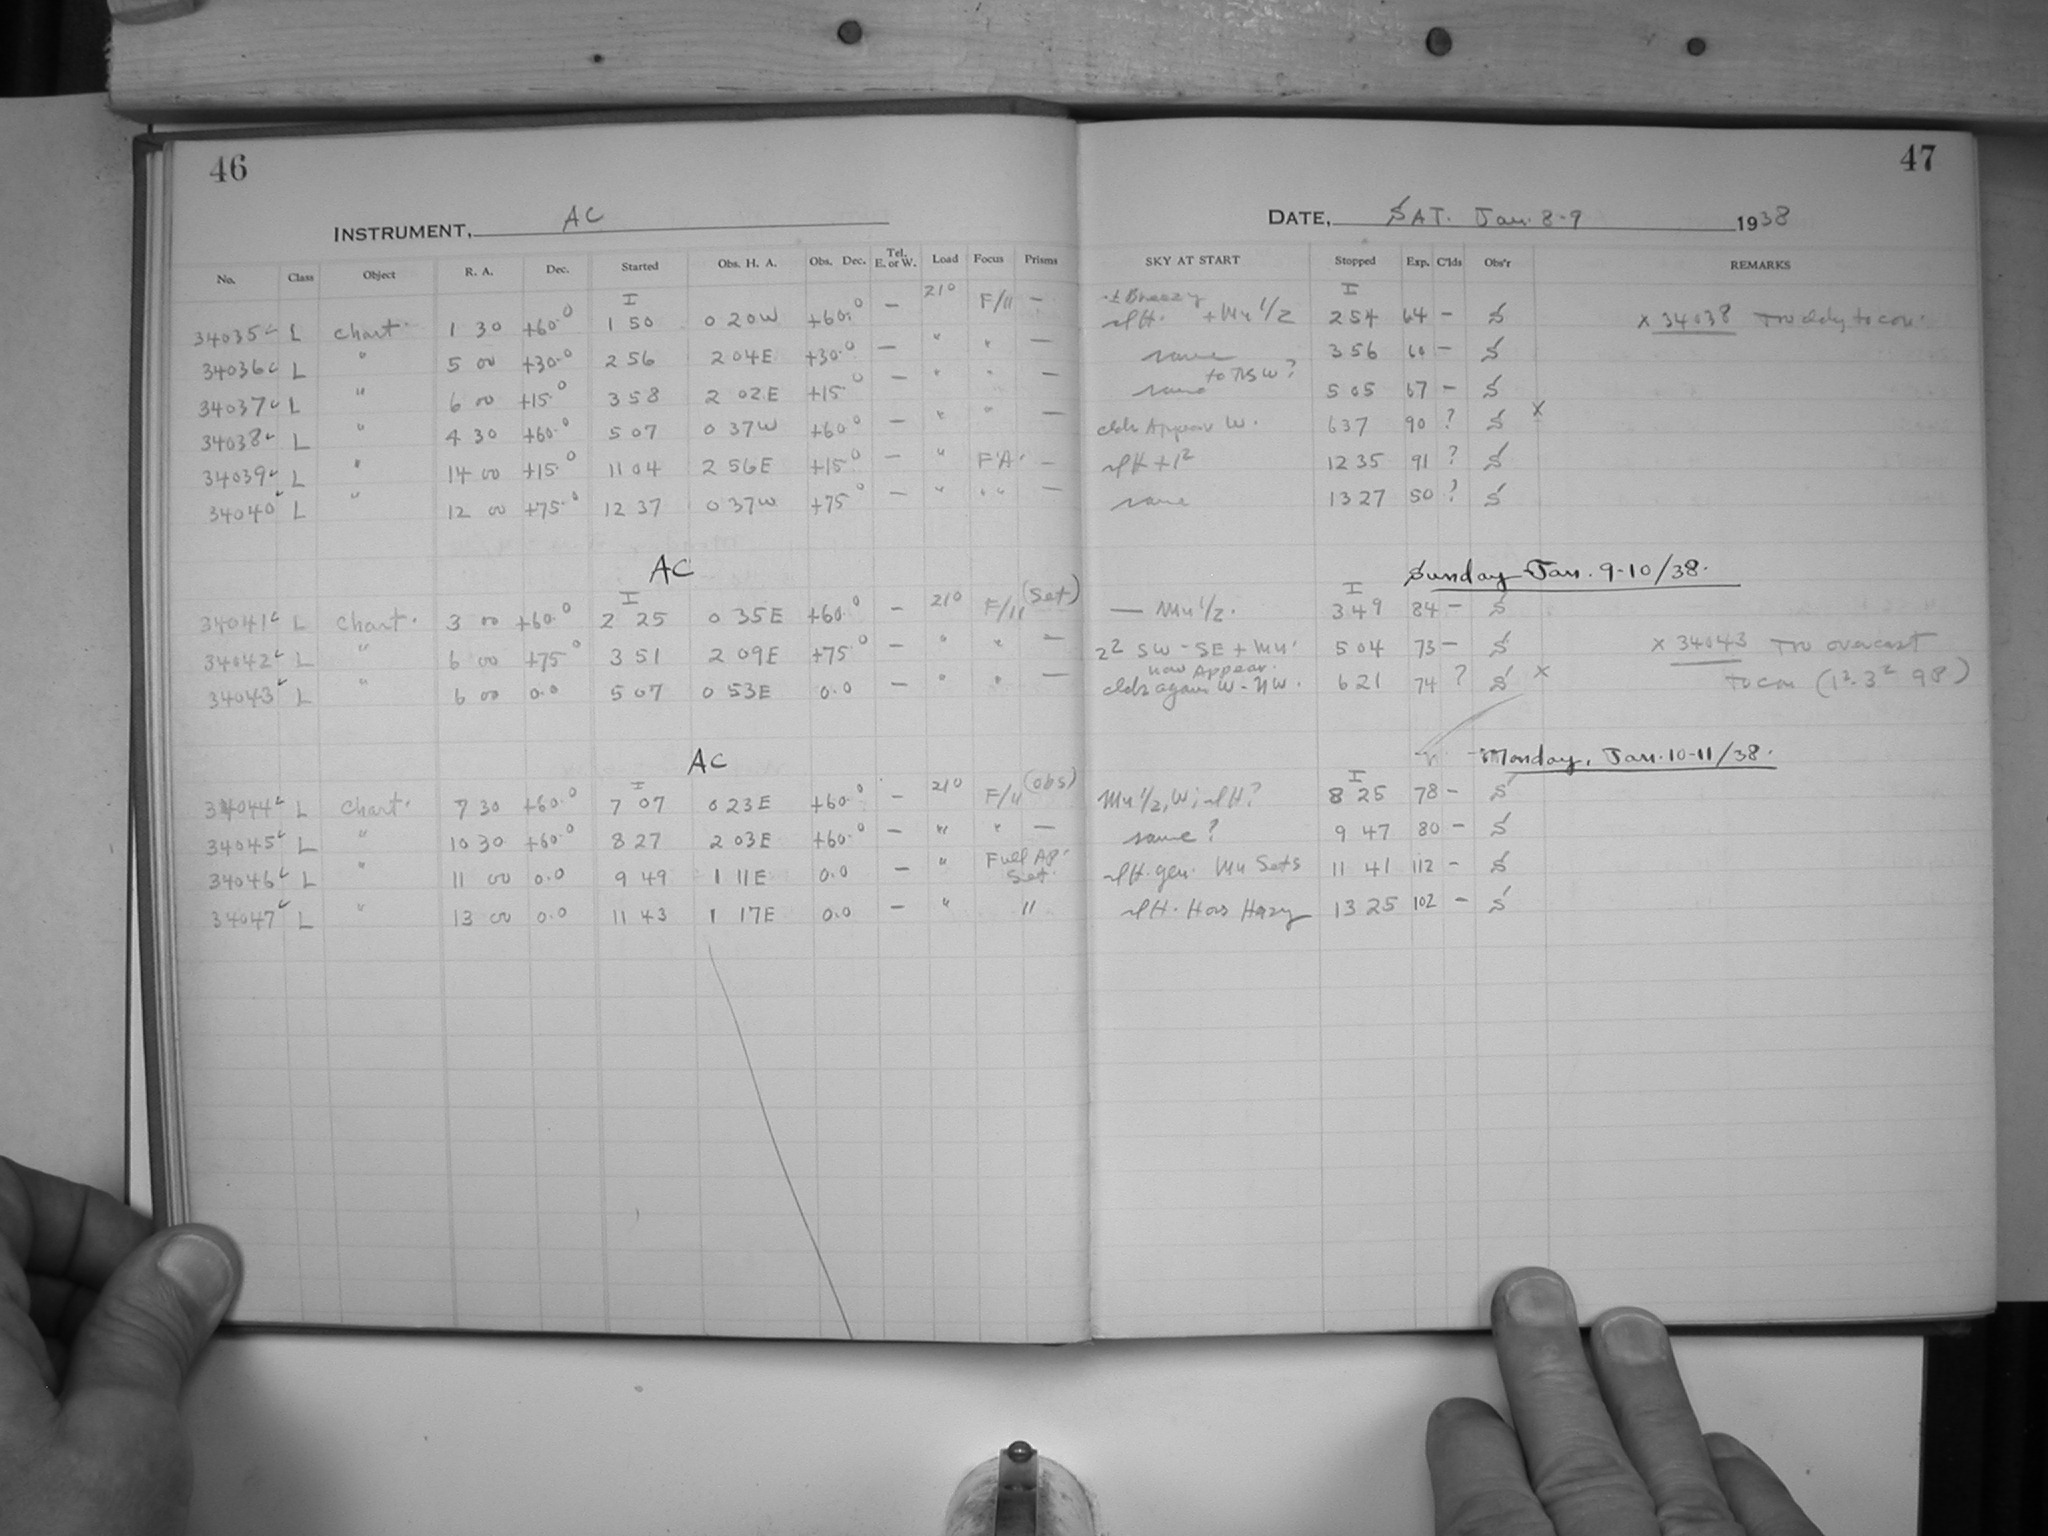 46
47
INSTRUMENT, AC
DATE, SAT. Jan. 8-9 1938
No. Class Object R. A. Dec. Started Obs. H. A. Obs. Dec. Tel. E. or W. Load Focus Prisms SKY AT START Stopped Exp. C'lds Obs'r REMARKS
I 210 ± Breezy I
34035 L Chart. 1 30 +60.0 1 50 0 20W +60.0 — F/11 — + Mn 1/2 2 54 64 — S x 34038
34036 L " 5 00 +30.0 2 56 2 04E +30.0 — " " — same 3 56 60 — S
to NSW?
34037 L " 6 00 +15.0 3 58 2 02E +15.0 — " " — same 5 05 67 — S
34038 L " 4 30 +60.0 5 07 0 37W +60.0 — " " — clds Appear W. 6 37 90 ? S x
34039 L " 14 00 +15.0 11 04 2 56E +15.0 — " F A. — 12 35 91 ? S
34040 L " 12 00 +75.0 12 37 0 37W +75.0 — " " " — same 13 27 50 ? S
AC Sunday Jan. 9-10/38.
I 210 (Set) I
34041 L Chart. 3 00 +60.0 2 25 0 35E +60.0 — F/11 — Mn 1/2. 3 49 84 — S
34042 L " 6 00 +75.0 3 51 2 09E +75.0 — " " — 2² SW - SE + Mn. 5 04 73 — S x 34043 overcast
now Appear.
34043 L " 6 00 0.0 5 07 0 53E 0.0 — " " — clds again W - NW. 6 21 74 ? S x to con (1² 3² 98)
AC Monday, Jan. 10-11/38.
I 210 (obs) I
34044 L Chart. 7 30 +60.0 7 07 0 23E +60.0 — F/11 Mn 1/2, W; 8 25 78 — S
34045 L " 10 30 +60.0 8 27 2 03E +60.0 — " " — same? 9 47 80 — S
34046 L " 11 00 0.0 9 49 1 11E 0.0 — " Full Ap. Set. gen. Mn Sets 11 41 112 — S
34047 L " 13 00 0.0 11 43 1 17E 0.0 — " " Hors Hazy 13 25 102 — S